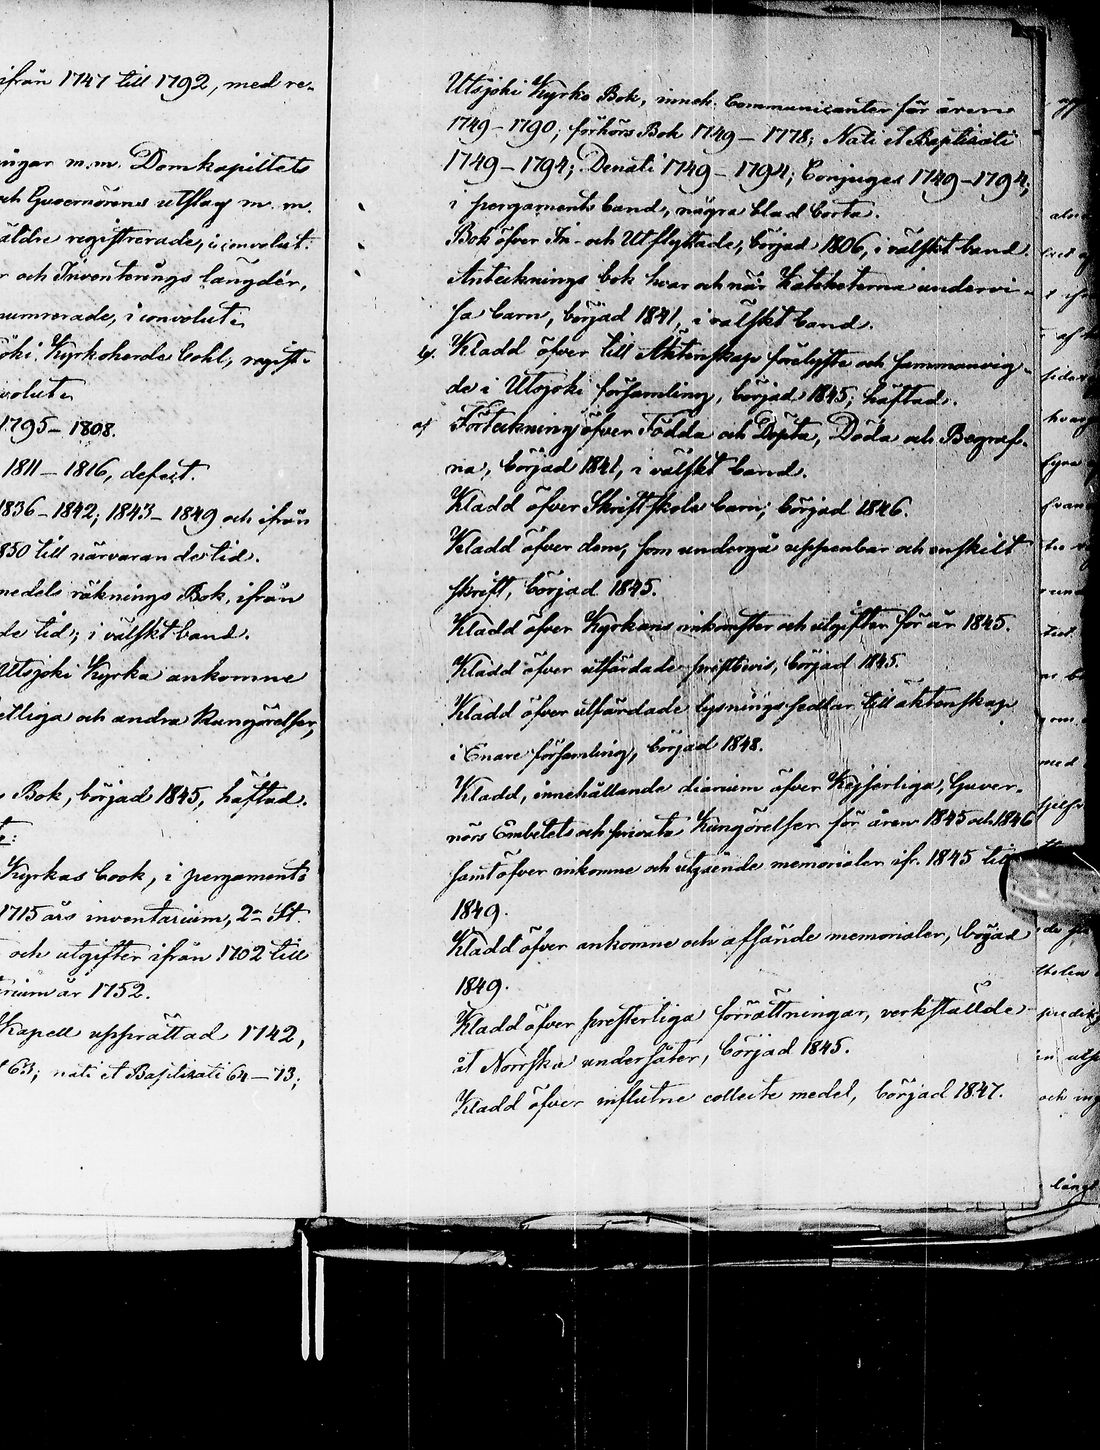 ifrån 1747 till 1792, med re-
ningar m.m. Domkapitlets
och Guvernörens utslag m. m.
äldre registrerade, i convolut.
r och Inventerings längder,
numrerade, i convolut.
jöki Kyrkoherde Cohl; regist-
volut.
1795–1808.
1811–1816, defect.
1836–1842; 1843–1849 och ifrån
850 till närvarande tid.
medels räknings Bok, ifrån
de tid; i välskt band.
Utsjoki Kyrka ankomne
etliga och andra Kungörelser,
s Bok, börjad 1845, häftad.
Kyrkas book, i pergaments
1715 års inventarium, 2ne St
och utgifter ifrån 1702 till
rium år 1752.
Kapell upprättad 1742,
63; nati et Baptisati 64–73;
Utsjoki Kyrko Bok, inneh. Communicanter för åren
1749–1790; förhörs Bok 1749–1778; Nati et Baptisati
1749–1794; Denati 1749–1794; Conjuges 1749–1794;
i pergaments band, några blad borta.
Bok öfver In- och Utflyttade, börjad 1806, i välskt band.
Antecknings bok hvar och när Katecheterna undervi-
sa barn, börjad 1841, i välskt band.
Kladd öfver till Äktenskap förelyste och sammanvig-
de i Utsjoki församling, börjad 1845; häftad.
Förteckning öfver Födda och Döpta, Döda och Begraf-
na, börjad 1841, i välskt band.
Kladd öfver Skriftskole barn; börjad 1846.
Kladd öfver dem, som undergå uppenbar och enskilt
skrift, börjad 1845.
Kladd öfver Kyrkans inkomster och utgifter för år 1845.
Kladd öfver utfärdade prestbevis, börjad 1845.
Kladd öfver utfärdade lysningssedlar till äktenskap
i Enare församling, börjad 1848.
Kladd, innehållande diarium öfver Kejserliga, Guver-
nörs Embetets och privata Kungörelser för åren 1845 och 1846
samt öfver inkomne och utgående memorialer ifr. 1845 till
1849.
Kladd öfver ankomne och afsände memorialer, börjad
1849.
Kladd öfver presterliga förrättningar, verkställde
åt Norrska undersåter, börjad 1845.
Kladd öfver influtne collecte medel, börjad 1847.